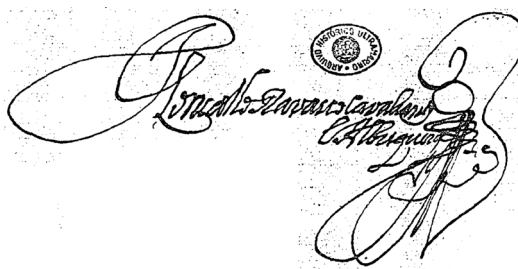 ARQUIVO HISTÓRICO ULTRAMARINO
Gonçallo Ravasco Cavalcanti
e Albuquerque